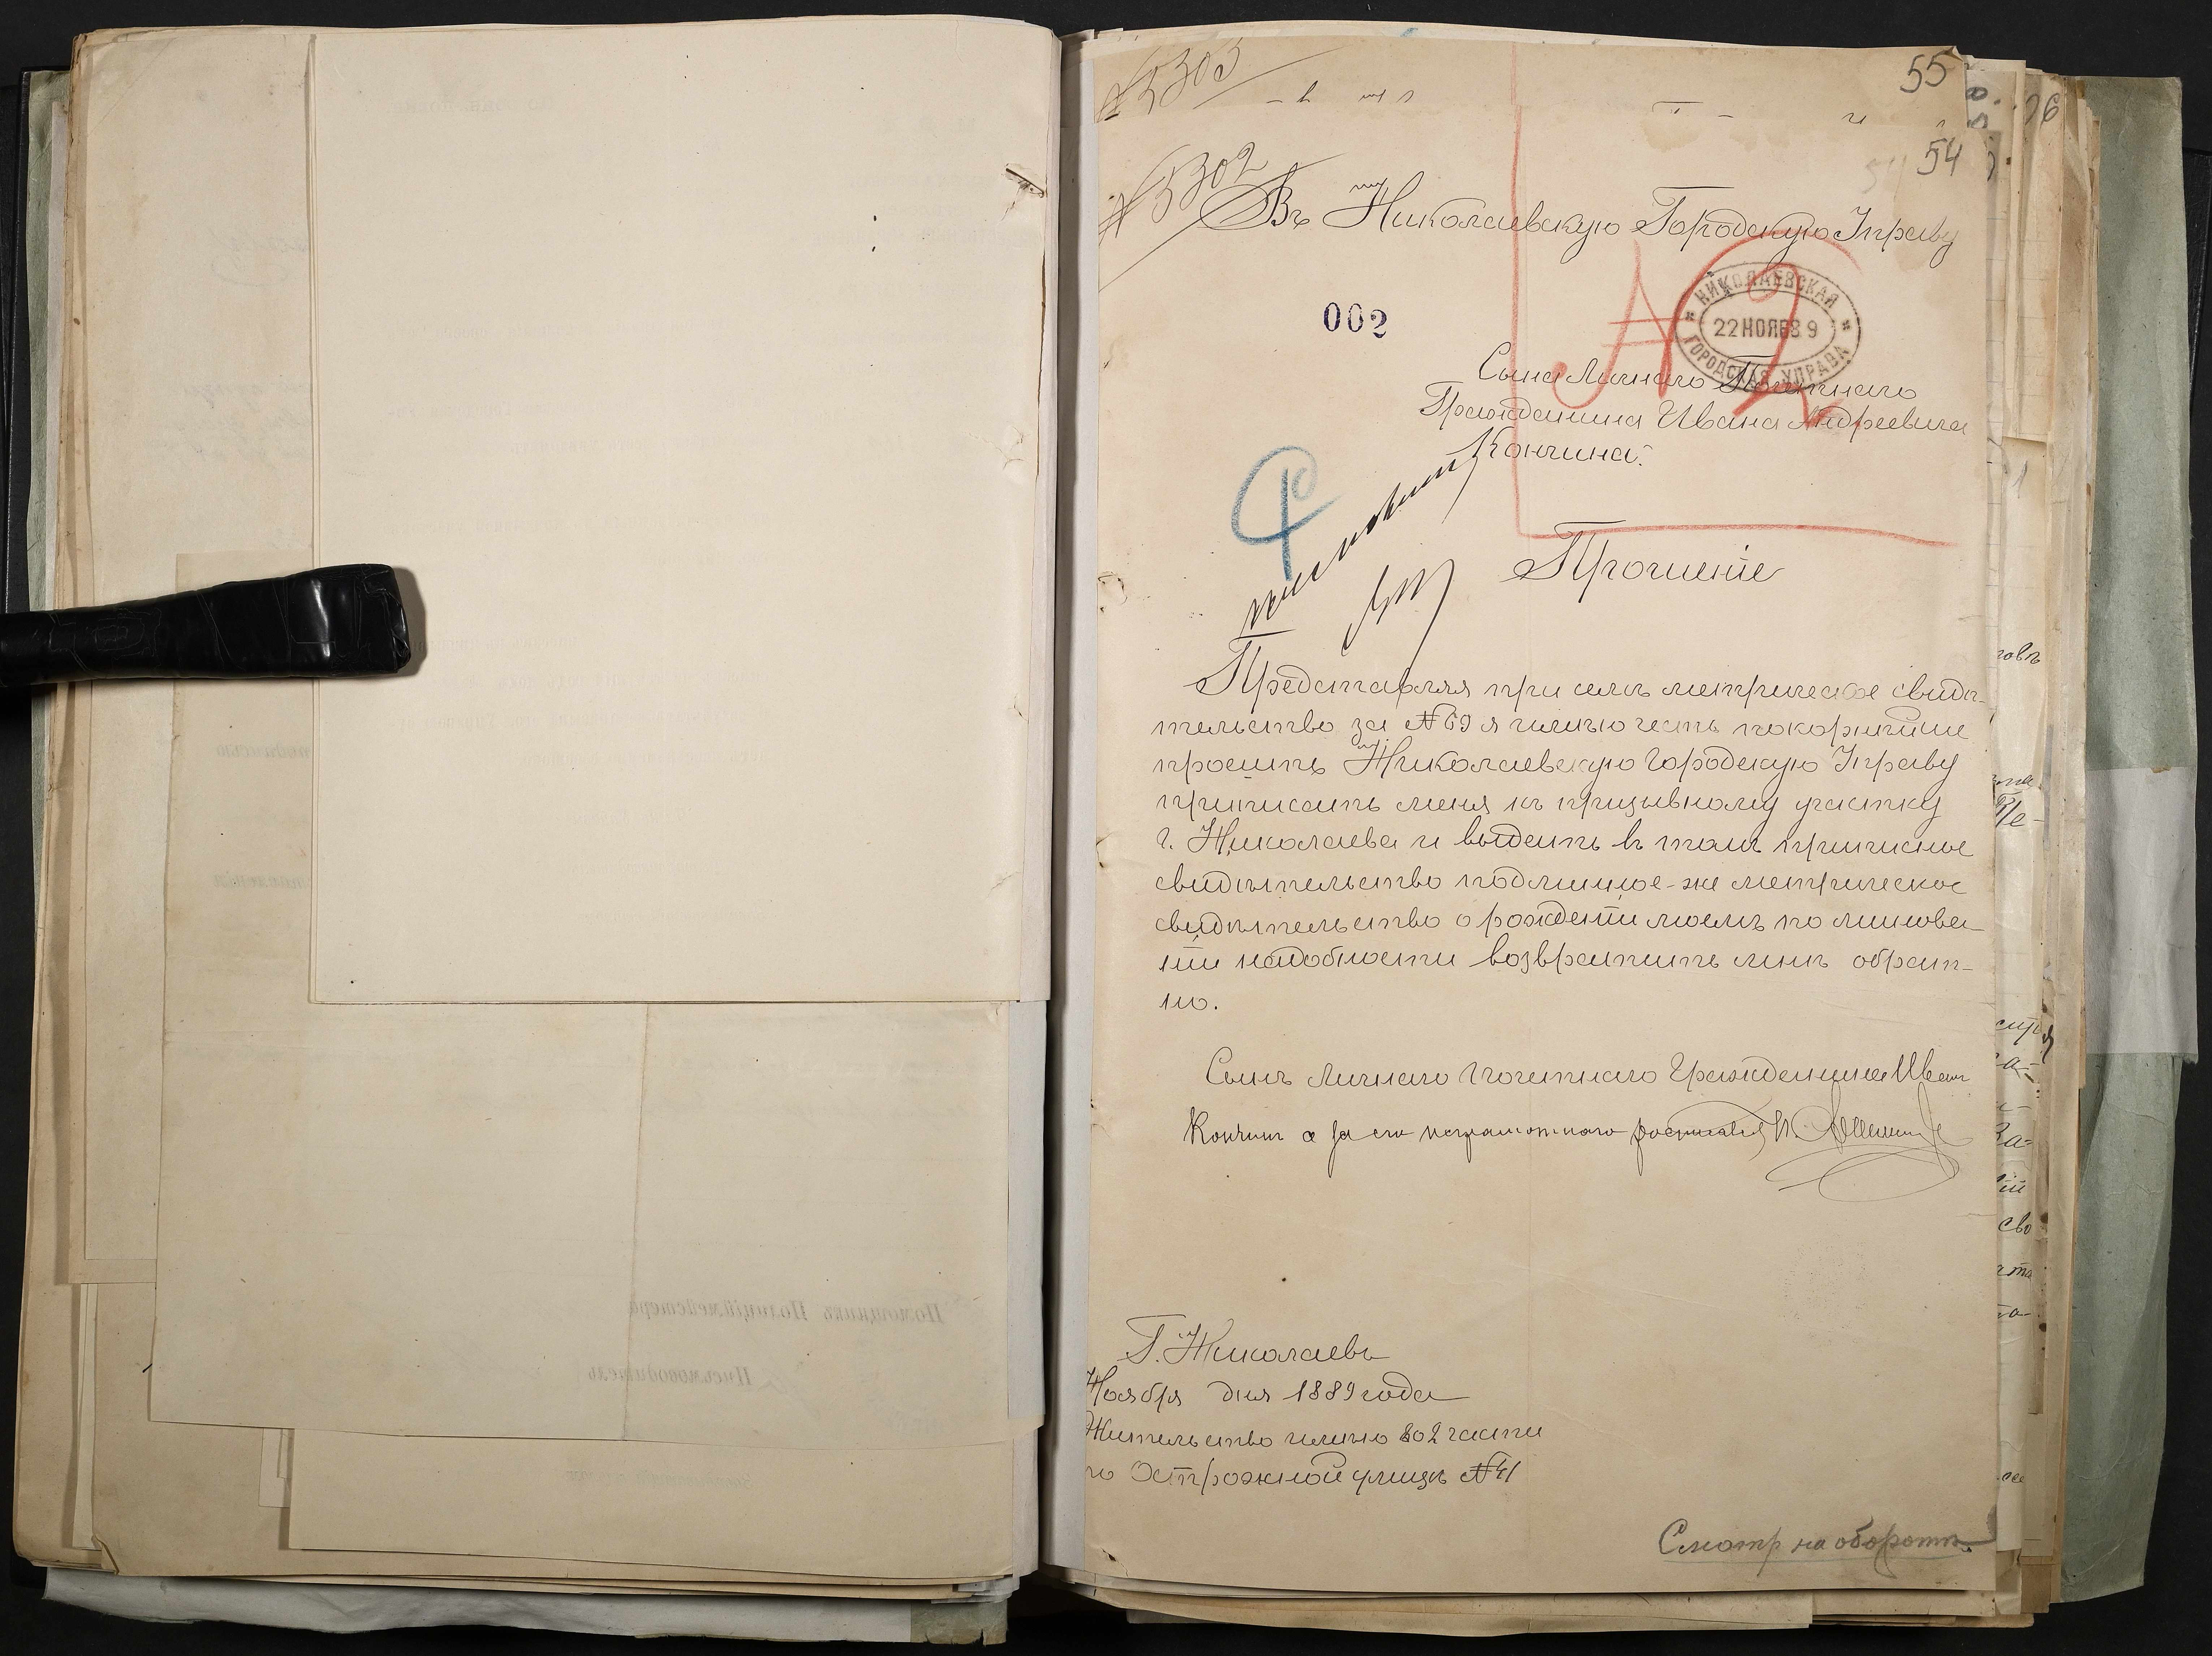 № 5303
55
54
№ 5302
Въ Николаевскую Городскую Управу
002
НИКОЛАЕВСКАЯ
22 НОЯБ 89
ГОРОДСКАЯ УПРАВА
№ 2
Сына Личнаго Почетнаго
Гражданина Ивана Андреевича
Кончина.
Прошеніе
Представляя при семъ метрическое свидѣ-
тельство за № 69 я имѣю честь покорнѣйше
просить Николаевскую Городскую Управу
приписать меня къ призывному участку
г. Николаева и выдать въ томъ приписное
свидѣтельство подлинное-же метрическое
свидѣтельство о рожденіи моемъ по минова-
ніи надобности возвратить мнѣ обрат-
но.
Сынъ Личнаго Почетнаго Гражданина Иванъ
Кончин а за его неграмотного росписался
Г. Николаевъ
Ноября дня 1889 года
Жительство имѣю во 2 части
по Острожной улицѣ № 41
Смотр на оборотѣ.
76
Помощникъ Полиціймейстера
Письмоводитель